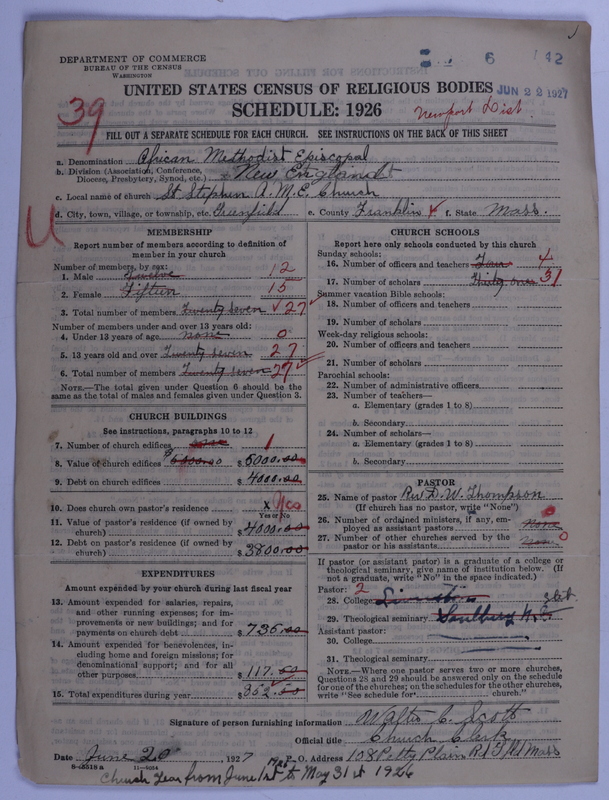 DEPARTMENT OF COMMERCE
BUREAU OF THE CENSUS
WASHINGTON
6 142
UNITED STATES CENSUS OF RELIGIOUS BODIES JUN 22 1927
SCHEDULE: 1926
39 Newport Dist.
FILL OUT A SEPARATE SCHEDULE FOR EACH CHURCH. SEE INSTRUCTIONS ON THE BACK OF THIS SHEET
a. Denomination African Methodist Episcopal
b. Division (Association, Conference, Diocese, Presbytery, Synod, etc.) New England
c. Local name of church St Stephen A.M.E. Church
d. City, town, village, or township, etc. Greenfield e. County Franklin f. State Mass.
U
MEMBERSHIP
Report number of members according to definition of
member in your church
Number of members, by sex:
1. Male Twelve 12
2. Female Fifteen 15
3. Total number of members Twenty seven 27
Number of members under and over 13 years old:
4. Under 13 years of age none 0
5. 13 years old and over Twenty seven 27
6. Total number of members Twenty seven 27
NOTE.—The total given under Question 6 should be the
same as the total of males and females given under Question 3.
CHURCH BUILDINGS
See instructions, paragraphs 10 to 12
7. Number of church edifices one 1
8. Value of church edifices $ 6000.00
9. Debt on church edifices $ 4000.00
10. Does church own pastor's residence X Yes
Yes or No
11. Value of pastor's residence (if owned by
church) $ 4000.00
12. Debt on pastor's residence (if owned by
church) $ 3800.00
EXPENDITURES
Amount expended by your church during last fiscal year
13. Amount expended for salaries, repairs,
and other running expenses; for im-
provements or new buildings; and for
payments on church debt $ 735.00
14. Amount expended for benevolences, in-
cluding home and foreign missions; for
denominational support; and for all
other purposes $ 117.50
15. Total expenditures during year $ 852.50
CHURCH SCHOOLS
Report here only schools conducted by this church
Sunday schools:
16. Number of officers and teachers Four 4
17. Number of scholars Thirty one 31
Summer vacation Bible schools:
18. Number of officers and teachers
19. Number of scholars
Week-day religious schools:
20. Number of officers and teachers
21. Number of scholars
Parochial schools:
22. Number of administrative officers
23. Number of teachers—
a. Elementary (grades 1 to 8)
b. Secondary
24. Number of scholars—
a. Elementary (grades 1 to 8)
b. Secondary
PASTOR
25. Name of pastor Rev. D. W. Thompson
(If church has no pastor, write "None")
26. Number of ordained ministers, if any, em-
ployed as assistant pastors None 0
27. Number of other churches served by the
pastor or his assistants None 0
If pastor (or assistant pastor) is a graduate of a college or
theological seminary, give name of institution below. (If
not a graduate, write "No" in the space indicated.)
Pastor: 2
28. College
29. Theological seminary
Assistant pastor:
30. College
31. Theological seminary
NOTE.—Where one pastor serves two or more churches,
Questions 28 and 29 should be answered only on the schedule
for one of the churches; on the schedules for the other churches,
write "See schedule for church."
Signature of person furnishing information Walter C. Scott
Official title Church Clerk
Date June 20 1927 P. O. Address 108 Petty Plain Rd Mass
8-5518a 11-9084
Church Year from June 1st to May 31st 1926